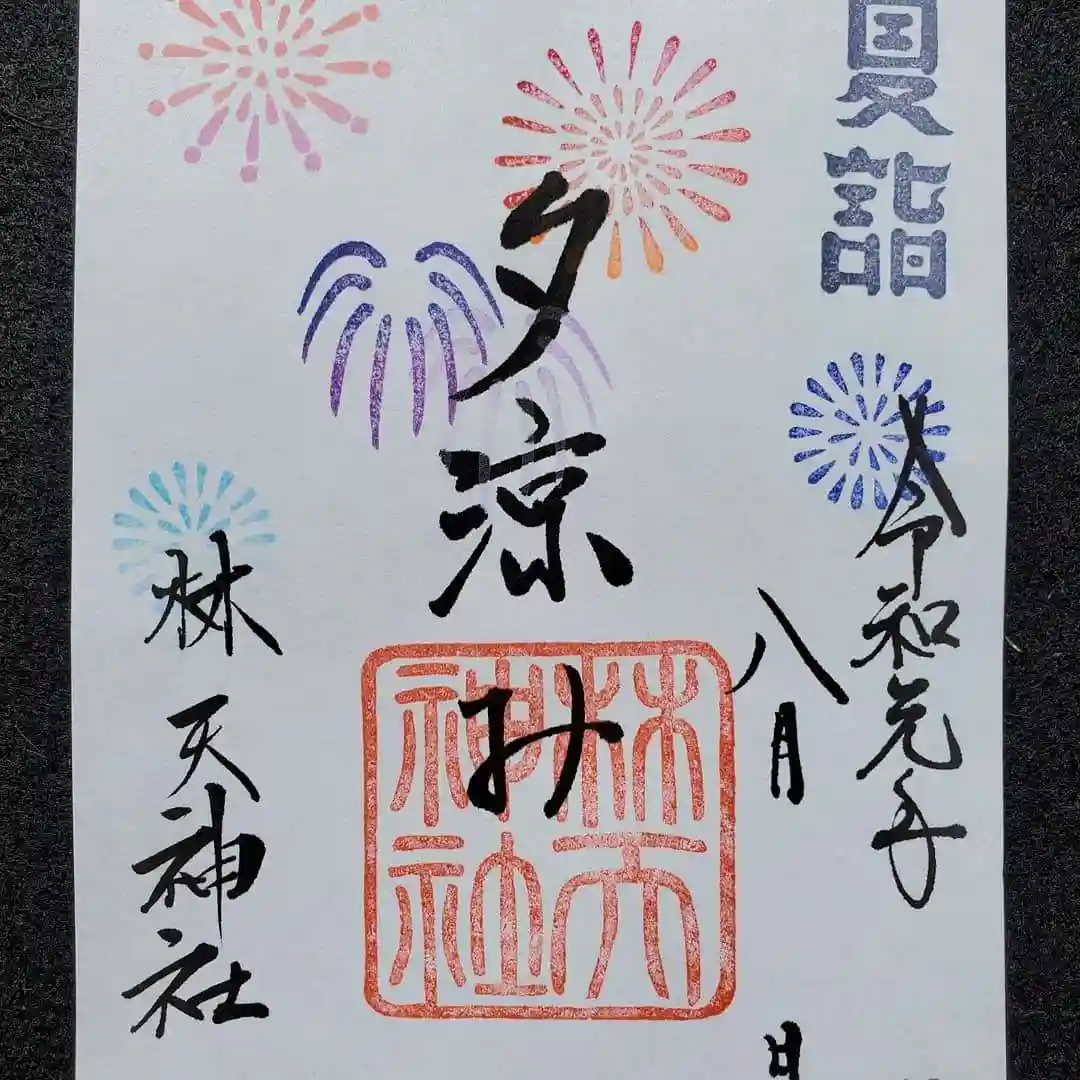 夏詣
令和元年
八月
日
夕涼み
林天神社
林天神社